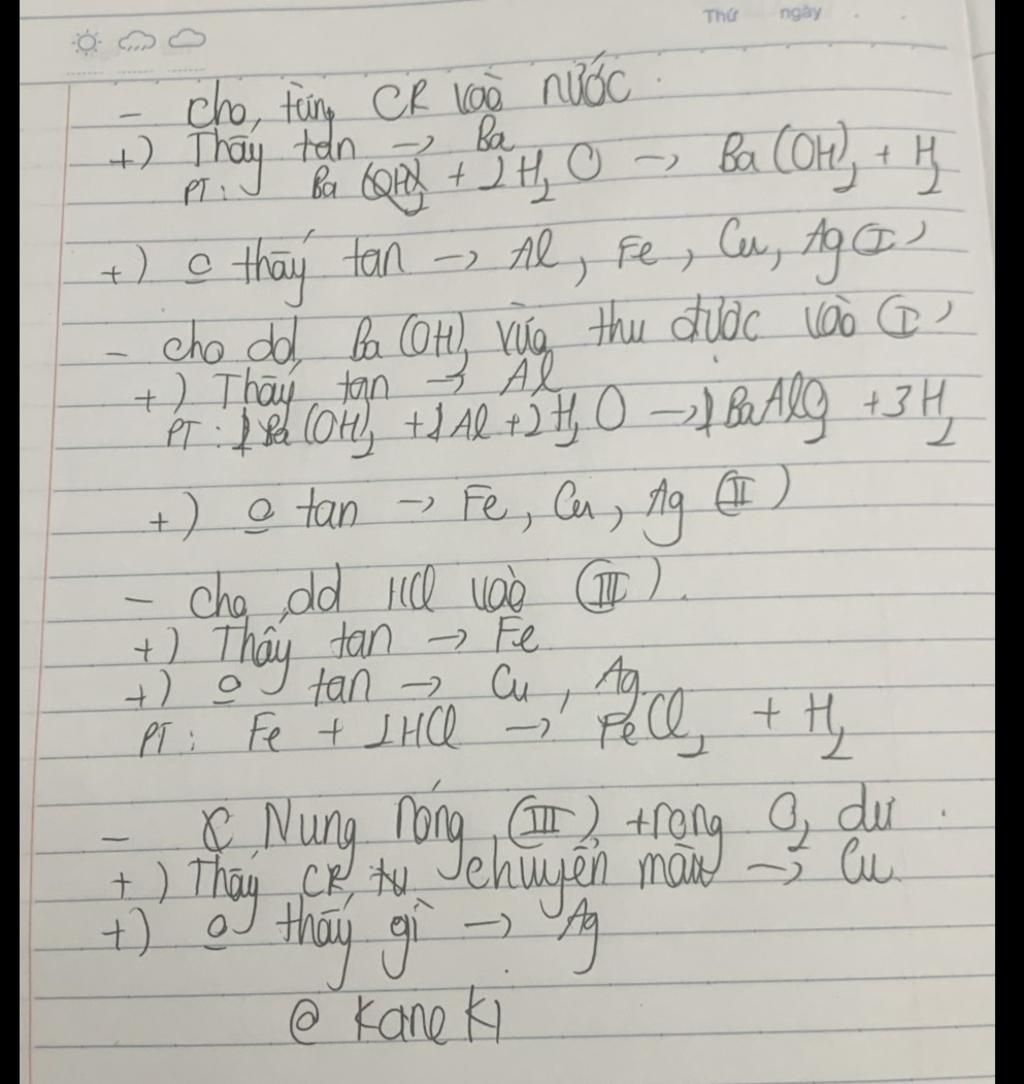 Thứ ngày
- cho từng CR vào nước
+) Thấy tan → Ba
PT: Ba + 2H₂O → Ba(OH)₂ + H₂
+) o thấy tan → Al, Fe, Cu, Ag (I)
- cho dd Ba(OH)₂ vừa thu được vào (I)
+) Thấy tan → Al
PT: Ba(OH)₂ + 2Al + 2H₂O → BaAlO₂ + 3H₂
+) o tan → Fe, Cu, Ag (II)
- cho dd HCl vào (III).
+) Thấy tan → Fe
+) o tan → Cu, Ag
PT: Fe + 2HCl → FeCl₂ + H₂
- Nung nóng (III) trong O₂ dư.
+) Thấy CR từ chuyển màu → Cu
+) o thấy gì → Ag
@ Kane Ki